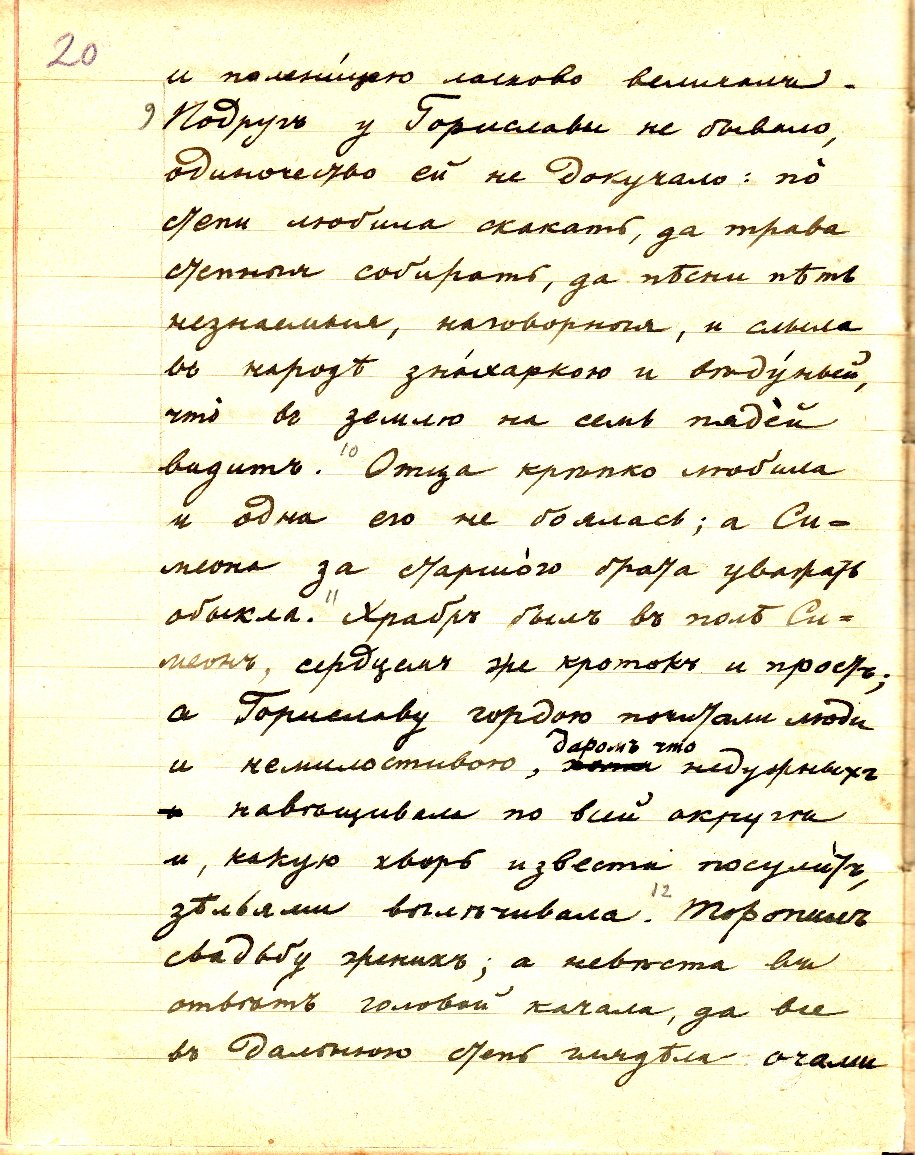 20
и полени́цею ласково величали.
9 Подругъ у Гориславы не бывало,
одиночество ей не докучало: по̀
степи любила скакать, да трава
степныя собирать, да пѣсни пѣть
незнаемыя, наговорныя, и слыла
въ народѣ зна́харкою и вѣду́ньей,
что̀ въ землю на семь пядѐй
видитъ. 10 Отца крѣпко любила
и одна его не боялась; а Си=
меона за старшо̀го брата уважать
обыкла. 11 Храбръ былъ въ полѣ Си=
меонъ, сердцемъ же кротокъ и простъ;
а Гориславу гордою почитали люди
и немилостивою, даромъ что недужныхъ
навѣщивала по всей округѣ
и, какую хворь извести посули́тъ,
зѣльями вылѣчивала. 12 Торопилъ
свадьбу женихъ; а невѣста въ
отвѣтъ головой качала, да все
въ дальнюю степь глядѣла очами